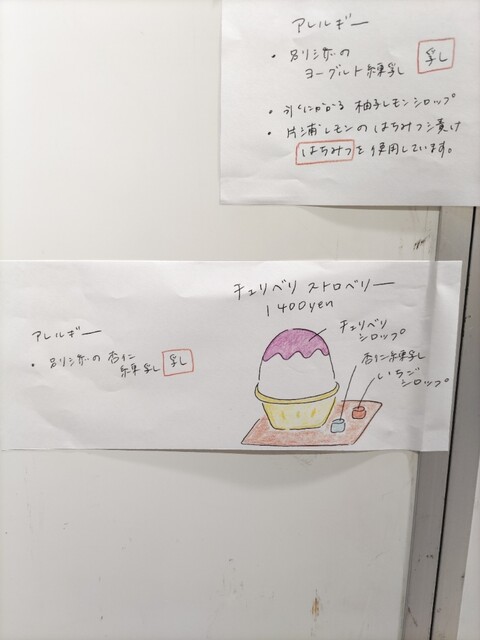 アレルギー
・別添の
ヨーグルト練乳 乳
・氷にかかる 柚子レモンシロップ
・片浦レモンのはちみつ漬け
はちみつを使用しています。
チェリベリ ストロベリー
1400yen
アレルギー
・別添の杏仁
練乳 乳
チェリベリ
シロップ
杏仁練乳
いちご
シロップ